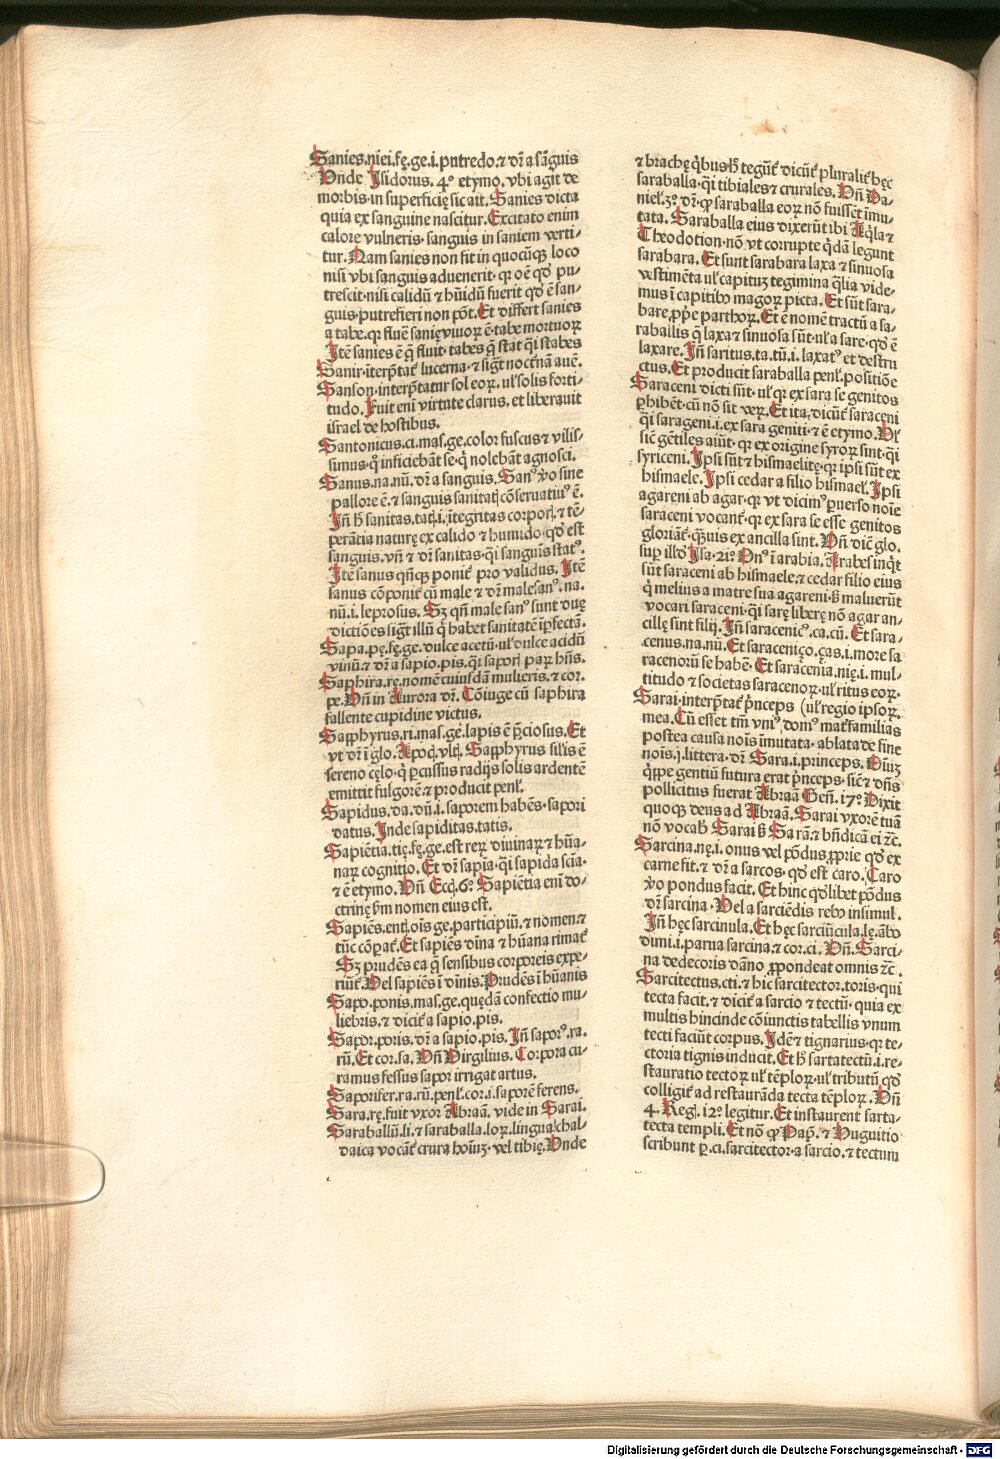 Sanies.niei.fę.ge.i.putredo.⁊ dr̄ a sāguis
Vnde Isidorus. 4º etymo. vbi agit de
morbis in superficię sic ait. Sanies dicta
quia ex sanguine nascitur. Excitato enim
calore vulneris sanguis in saniem verti-
tur. Nam sanies non fit in quocūqꝫ loco
nisi vbi sanguis aduenerit. qꝛ oē qd̄ pu-
trescit nisi calidū ⁊ hūidū fuerit qd̄ ē san-
guis putrefieri non pōt. Et differt sanies
a tabe. qꝛ fluē sanię viuoꝝ ē. tabe mortuoꝝ
Itē sanies ē q̄ fluit. tabes q̄ stat q̄i stabes
Sanir. iterp̄tat̄ lucerna. ⁊ sigt̄ noctnā auē.
Sanson. interp̄tatur sol eoꝝ. ul̓ solis forti-
tudo. Fuit eni virtute clarus. et liberauit
israel de hostibus.
Santonicus.ci.mas.ge. color fuscus ⁊ vilis-
simus. q̊ inficiebāt se. q̓ nolebāt agnosci.
Sanus.na.nū. dr̄ a sanguis. Sanꝰ v̊o sine
pallore ē. ⁊ sanguis sanitatꝭ cōseruatiuꝰ ē.
In̄ h̄ sanitas.tatꝭ.i. ītegritas corporꝭ. ⁊ tē-
perātia naturę ex calido ⁊ humido. qd̄ est
sanguis. vn̄ ⁊ dr̄ sanitas. q̄i sanguis statꝰ.
Itē sanus qn̄qꝫ ponit̄ pro validus. Itē
sanus cōponit̄ cū male ⁊ dr̄ malesanꝰ.na.
nū.i. leprosus. Sꝫ qn̄ male sanꝰ sunt duę
dictiōes sigt̄ illū q̓ habet sanitatē ip̄fectā.
Sapa.pę.fę.ge. dulce acetū. ul̓ dulce acidū
vinū. ⁊ dr̄ a sapio.pis. q̄i saporꝭ paꝝ hn̄s.
Saphira.rę. nomē cuiusdā mulieris. ⁊ cor.
pe. Vn̄ in Aurora dr̄. Cōiuge cū saphira
fallente cupidine victus.
Sapphyrus.ri.mas.ge. lapis ē p̄ciosus. Et
vt dr̄ ī glo. Apoc̨. vltꝭ. Sapphyrus silis ē
sereno cęlo. q̓ p̄cussus radijs solis ardentē
emittit fulgorē. ⁊ producit penl̓.
Sapidus.da.dū.i. saporem habēs. sapori
datus. Inde sapiditas.tatis.
Sapiētia.tię.fę.ge. est reꝝ diuinaꝝ ⁊ hūa-
naꝝ cognitio. Et dr̄ sapia. q̄i sapida scīa.
⁊ ē etymo. Vn̄ Ecci. 6º Sapiētia eni do-
ctrinę ẜm nomen eius est.
Sapiēs.entꝭ. oīs ge. participiū. ⁊ nomen. ⁊
tūc cōpat̄. Et sapiēs diīna ⁊ hūana rimat̄
Sꝫ prudēs ea q̄ sensibus corporeis expe-
riūt̄. Vel sapiēs ī diīnis. Prudēs ī hūanis
Sapo.ponis.mas.ge. quędā confectio mu-
liebris. ⁊ dicit̄ a sapio.pis.
Sapor.poris. dr̄ a sapio.pis. In̄ saporꝰ.ra.
rū. Et cor.sa. Vn̄ Virgilius. Corpora cu-
ramus fessus sapor irrigat artus.
Saporifer.ra.rū. penl̓. cor.i. saporē ferens.
Sara.rę. fuit vxor Abraā. vide in Sarai.
Saraballū.li. ⁊ saraballa.loꝝ. lingua chal-
daica vocāt̄ crura hoīuꝫ. vel tibię. Vnde
⁊ brachę q̓bus h̄ tegūt̄ dicūt̄ pluralit̄ hęc
saraballa. q̄i tibiales ⁊ crurales. Vn̄ Da-
niel. 3º. dr̄. ꝙ saraballa eoꝝ nō fuissēt imu-
tata. Saraballa eius dixerūt ibi Aq̓la ⁊
Theodotion. nō vt corrupte q̓dā legunt
sarabara. Et sunt sarabara laxa ⁊ sinuosa
vestimēta ul̓ capituꝫ tegimina q̄lia vide-
mus ī capitibꝰ magoꝝ picta. Et sūt sara-
bare. p̄pe parthoꝝ. Et ē nomē tractū a sa-
raballis q̄ laxa ⁊ sinuosa sūt. ul̓ a sare. qd̄ ē
laxare. In̄ saritus.ta.tū.i. laxatꝰ et destru
ctus. Et producit saraballa penl̓. positiōe
Saraceni dicti sūt. ul̓ qꝛ ex sara se genitos
ꝑhibēt. cū nō sit veꝝ. Et ita. dicūt̄ saraceni
q̄i sarageni.i. ex sara geniti. ⁊ ē etymo. Vl̓
sic̄ gētiles aiūt. qꝛ ex origine syroꝝ sint. q̄i
syriceni. Ipsi sūt ⁊ hismaelitę. qꝛ ipsi sūt ex
hismaele. Ipsi cedar a filio hismael. Ipsi
agareni ab agar. qꝛ vt dicimꝰ puerso noīe
saraceni vocant̄. qꝛ ex sara se esse genitos
gloriāt̄. q̄uis ex ancilla sint. Vn̄ dic̄ glo.
sup̱ illd̓ Isa. 21º. Vnꝰ ī arabia. Arabes inq̓t
sūt saraceni ab hismaele. ⁊ cedar filio eius
q̓ melius a matre sua agareni. ẜ maluerūt
vocari saraceni. q̄i sarę liberę nō agar an-
cillę sint filij. In̄ saracenicꝰ.ca.cū. Et sara-
cenus.na.nū. Et saracenięo.ças.i. more sa
racenorū se habē. Et saracenia.nię.i. mul-
titudo ⁊ societas saracenoꝝ. ul̓ ritus eoꝝ.
Sarai. interp̄tat̄ p̄nceps (ul̓ regio ipsoꝝ.
mea. Cū esset tm̄ vniꝰ domꝰ matrfamilias
postea causa noīs imutata. ablata de fine
noīs.i.littera. dr̄ Sara.i. princeps. Oīuꝫ
q̓ppe gentiū futura erat p̄nceps. sic̄ ⁊ dn̄s
pollicitus fuerat Abraā Gen̄. 17º Dixit
quoqꝫ deus ad Abraā. Sarai vxorē tuā
nō vocabꝭ Sarai ẜ Sarā. ⁊ bn̄dicā ei ⁊c̄.
Sarcina.nę.i. onus vel pōdus. p̱prie qd̄ ex
carne fit. ⁊ dr̄ a sarcos. qd̄ est caro. Caro
v̊o pondus facit. Et hinc qd̓libet pōdus
dr̄ sarcina. Vel a sarciēdis rebꝰ insimul.
In̄ hęc sarcinula. Et hęc sarciūcula.lę. ābo
dimi.i. parua sarcina. ⁊ cor.ci. Vn̄. Sarci-
na dedecoris dāno p̱pondeat omnis ⁊c̄.
Sarcitectus.cti. ⁊ hic sarcitector.toris. qui
tecta facit. ⁊ dicit̄ a sarcio ⁊ tectū. quia ex
multis hincinde cōiunctis tabellis vnum
tecti faciūt corpus. Idē ⁊ tignarius. qꝛ te-
ctoria tignis inducit. Et h̄ sartatectū.i. re-
stauratio tectoꝝ ul̓ tēploꝝ. ul̓ tributū qd̄
colligit̄ ad restaurāda tecta tēploꝝ. Vn̄
4. Regꝭ. 12º legitur. Et instaurent sarta-
tecta templi. Et nō ꝙ Pap̄. ⁊ Huguitio
scribunt p̱.ci. sarcitector. a sarcio. ⁊ tectum
Digitalisierung gefördert durch die Deutsche Forschungsgemeinschaft - DFG